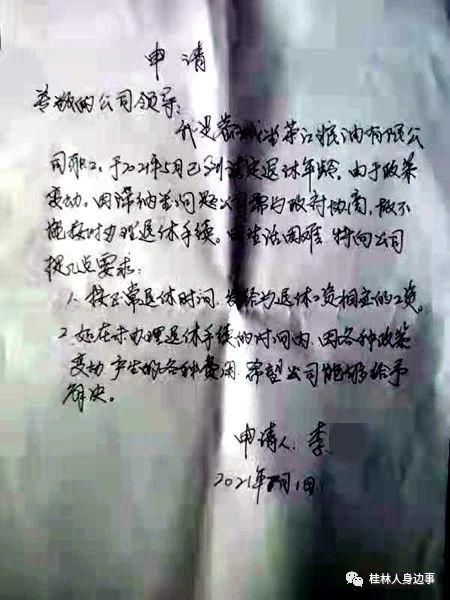 申请
尊敬的公司领导：
我是恭城茶江粮油有限公
司职工，于2021年5月已到法定退休年龄，由于政策
变动，因缴纳等问题公司需与政府协商，故不
能按时办理退休手续。因生活困难 特向公司
提几点要求：
1. 按正常退休时间，发给与退休工资相应的工资。
2. 如在未办理退休手续的时间内，因各种政策
变动产生的各种费用，希望公司能够给予
解决。
申请人：李
2021年 月1日
桂林人身边事